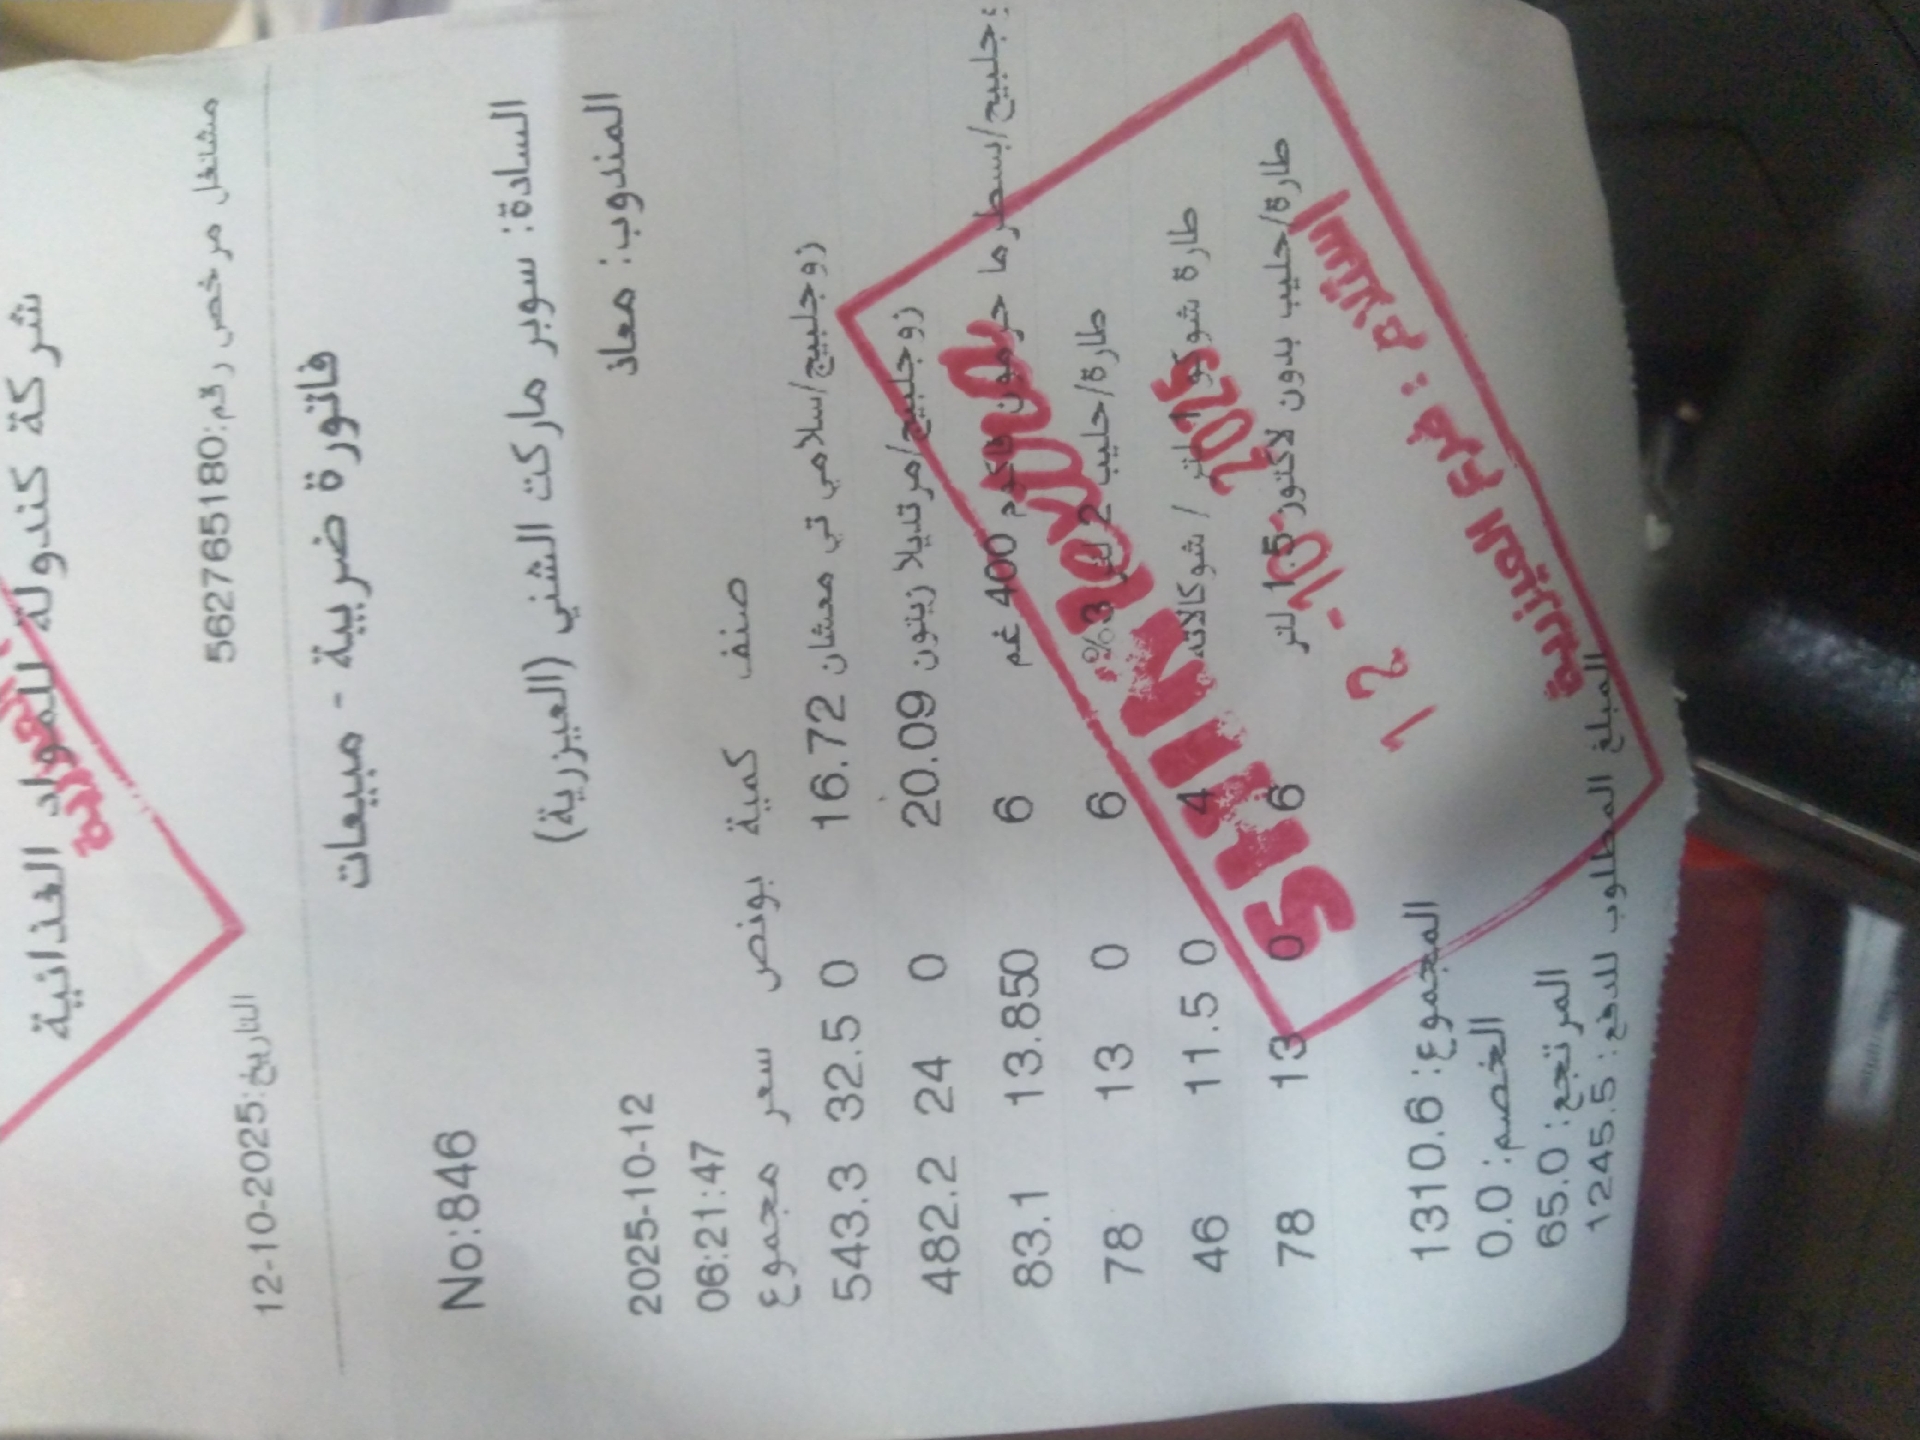 شركة كندولة للمواد الغذائية
مشتغل مرخص رقم:562765180
التاريخ:2025-10-12
فاتورة ضريبية - مبيعات
No:846
السادة: سوبر ماركت الشني (العيزرية)
المندوب: معاذ
2025-10-12
06:21:47
صنف كمية بونص سعر مجموع
زوجلبيج/سلامي تي معشان 16.72 0 32.5 543.3
زوجلبيج/مرتديلا زيتون 20.09 0 24 482.2
زوجلبيج/بسطرما 400 غم 6 0 13.85 83.1
طارة/حليب 2 لتر 3% 6 0 13 78
طارة شوكو 1 لتر / شوكالاته 4 0 11.5 46
طارة/حليب بدون لاكتوز 1.5 لتر 6 0 13 78
المجموع: 1310.6
الخصم: 0.0
المرتجع: 65.0
المبلغ المطلوب للدفع: 1245.5
SHINI
12 -10- 2025
استلام : فرع العيزرية
العيزرية